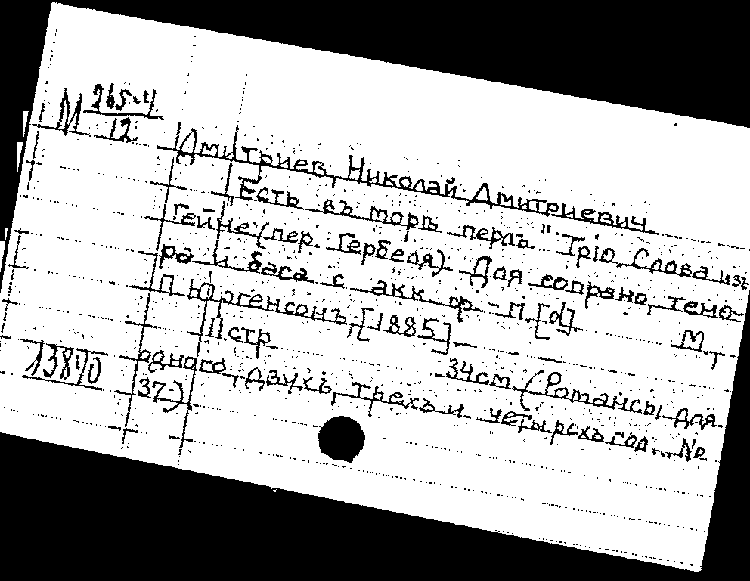 М 265-4
12
Дмитриев, Николай Дмитриевич.
"Есть въ морѣ перлъ" Трiо. Слова изъ
Гейне (пер. Гербеля). Для сопрано, тено-
ра и баса с акк. ф.-п. [d]. М.,
П. Юргенсонъ, [1885].
11 стр. 34см. (Романсы для
одного, двухъ, трехъ и четырехъ гол... №
37).
13840